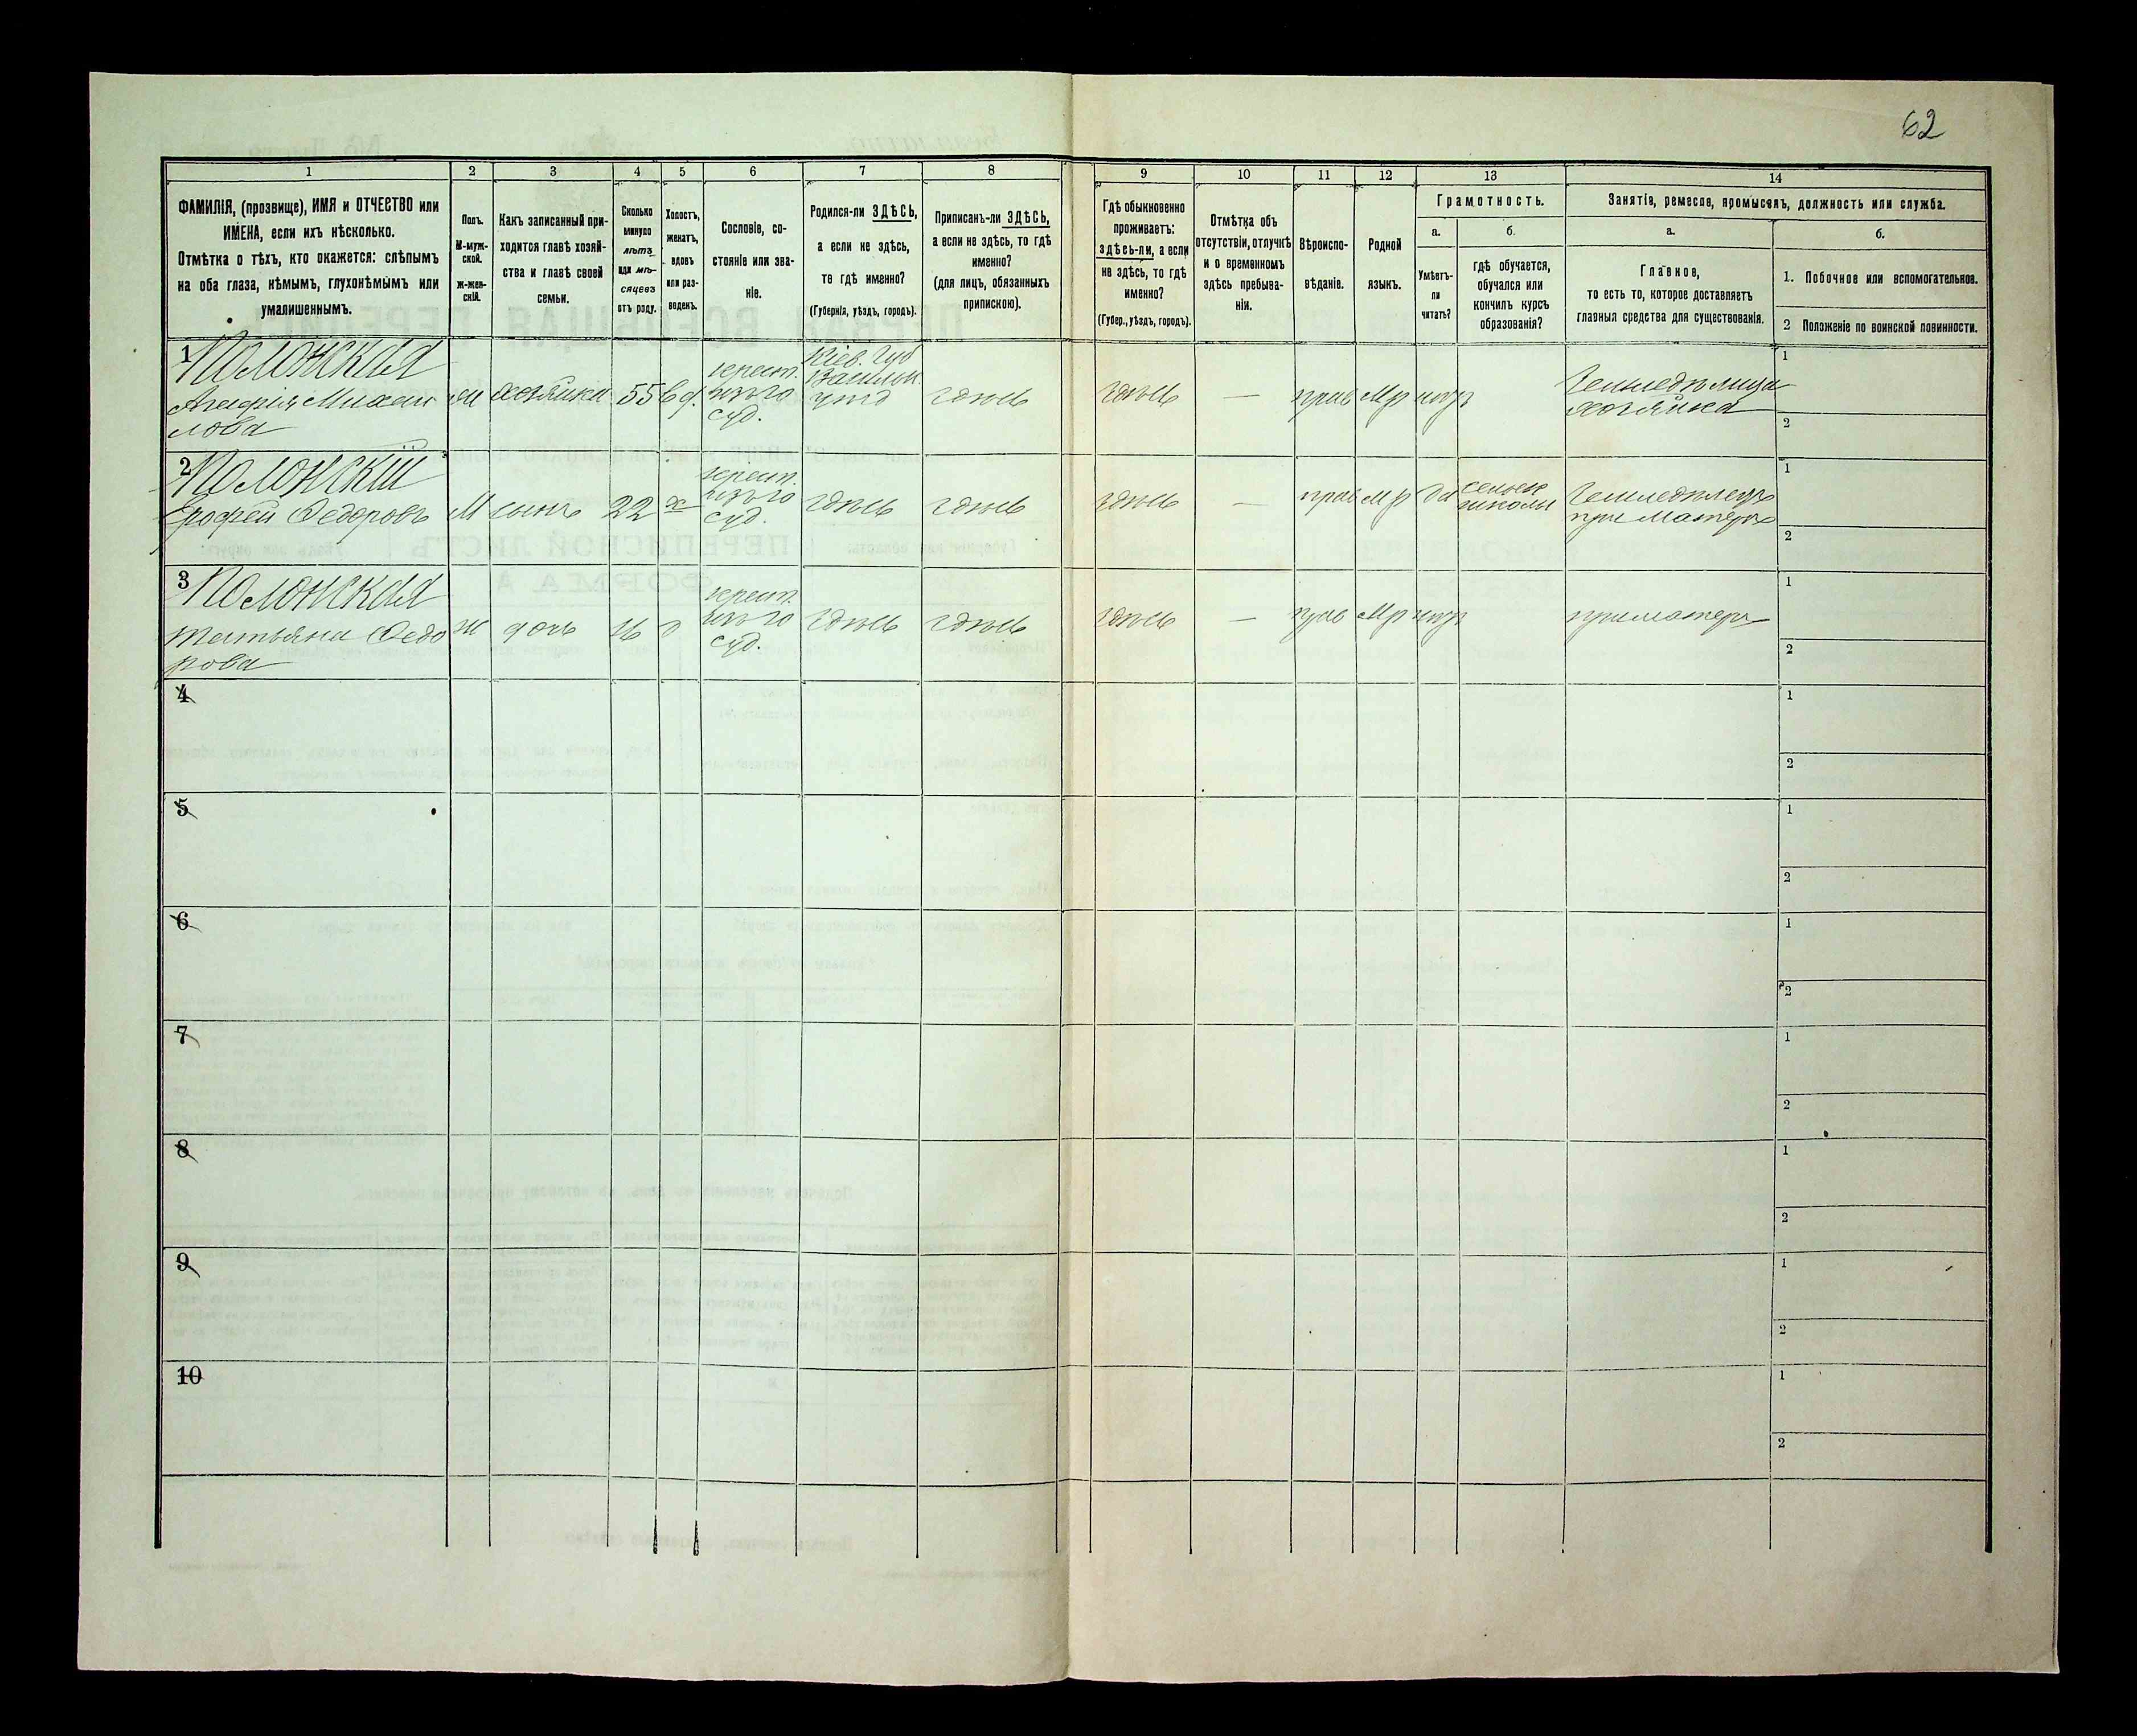 62
1 2 3 4 5 6 7 8 9 10 11 12 13 14
ФАМИЛІЯ, (прозвище), ИМЯ и ОТЧЕСТВО или
ИМЕНА, если ихъ нѣсколько.
Отмѣтка о тѣхъ, кто окажется: слѣпымъ
на оба глаза, нѣмымъ, глухонѣмымъ или
умалишеннымъ.
Полъ.
М-муж-
ской.
ж-жен-
скій.
Какъ записанный при-
ходится главѣ хозяй-
ства и главѣ своей
семьи.
Сколько
минуло
лѣтъ
или мѣ-
сяцевъ
отъ роду.
Холостъ,
женатъ,
вдовъ
или раз-
веденъ.
Сословіе, со-
стояніе или зва-
ніе.
Родился-ли ЗДѢСЬ,
а если не здѣсь,
то гдѣ именно?
(Губернія, уѣздъ, городъ).
Приписанъ-ли ЗДѢСЬ,
а если не здѣсь, то гдѣ
именно?
(для лицъ, обязанныхъ
припискою).
Гдѣ обыкновенно
проживаетъ:
здѣсь-ли, а если
не здѣсь, то гдѣ
именно?
(Губер., уѣздъ, городъ).
Отмѣтка объ
отсутствіи, отлучкѣ
и о временномъ
здѣсь пребыва-
ніи.
Вѣроиспо-
вѣданіе.
Родной
языкъ.
Грамотность.
а.
Умѣетъ-
ли
читать?
б.
гдѣ обучается,
обучался или
кончилъ курсъ
образованія?
Занятія, ремесло, промыселъ, должность или служба.
а.
Главное,
то есть то, которое доставляетъ
главныя средства для существованія.
б.
1. Побочное или вспомогательное.
2 Положеніе по воинской повинности.
1 Полонская
Агафія Михаи
лова
хозяйка 55 вд.
крест.
суд.
Кіев. Губ
Васильк.
уѣзд
здѣсь здѣсь — прав Мр нѣтъ
Земледѣлица
хозяйка
1
2
2 Полонскій
Ерофей Ѳедоровъ М сынъ 22 х
крест.
суд.
здѣсь здѣсь здѣсь — прав Мр да
сельск
школы
Земледѣлецъ
при матери
1
2
3 Полонская
Татьяна Ѳедо
рова
ж дочь 16 д
крест.
суд.
здѣсь здѣсь здѣсь — прав Мр нѣтъ при матери
1
2
4
1
2
5
1
2
6
1
2
7
1
2
8
1
2
9
1
2
10
1
2